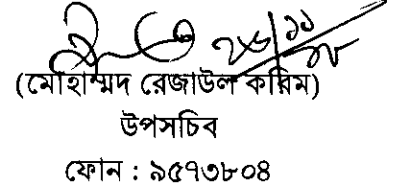 (মোহাম্মদ রেজাউল করিম)
উপসচিব
ফোন : ৯৫৭৩৮০৪